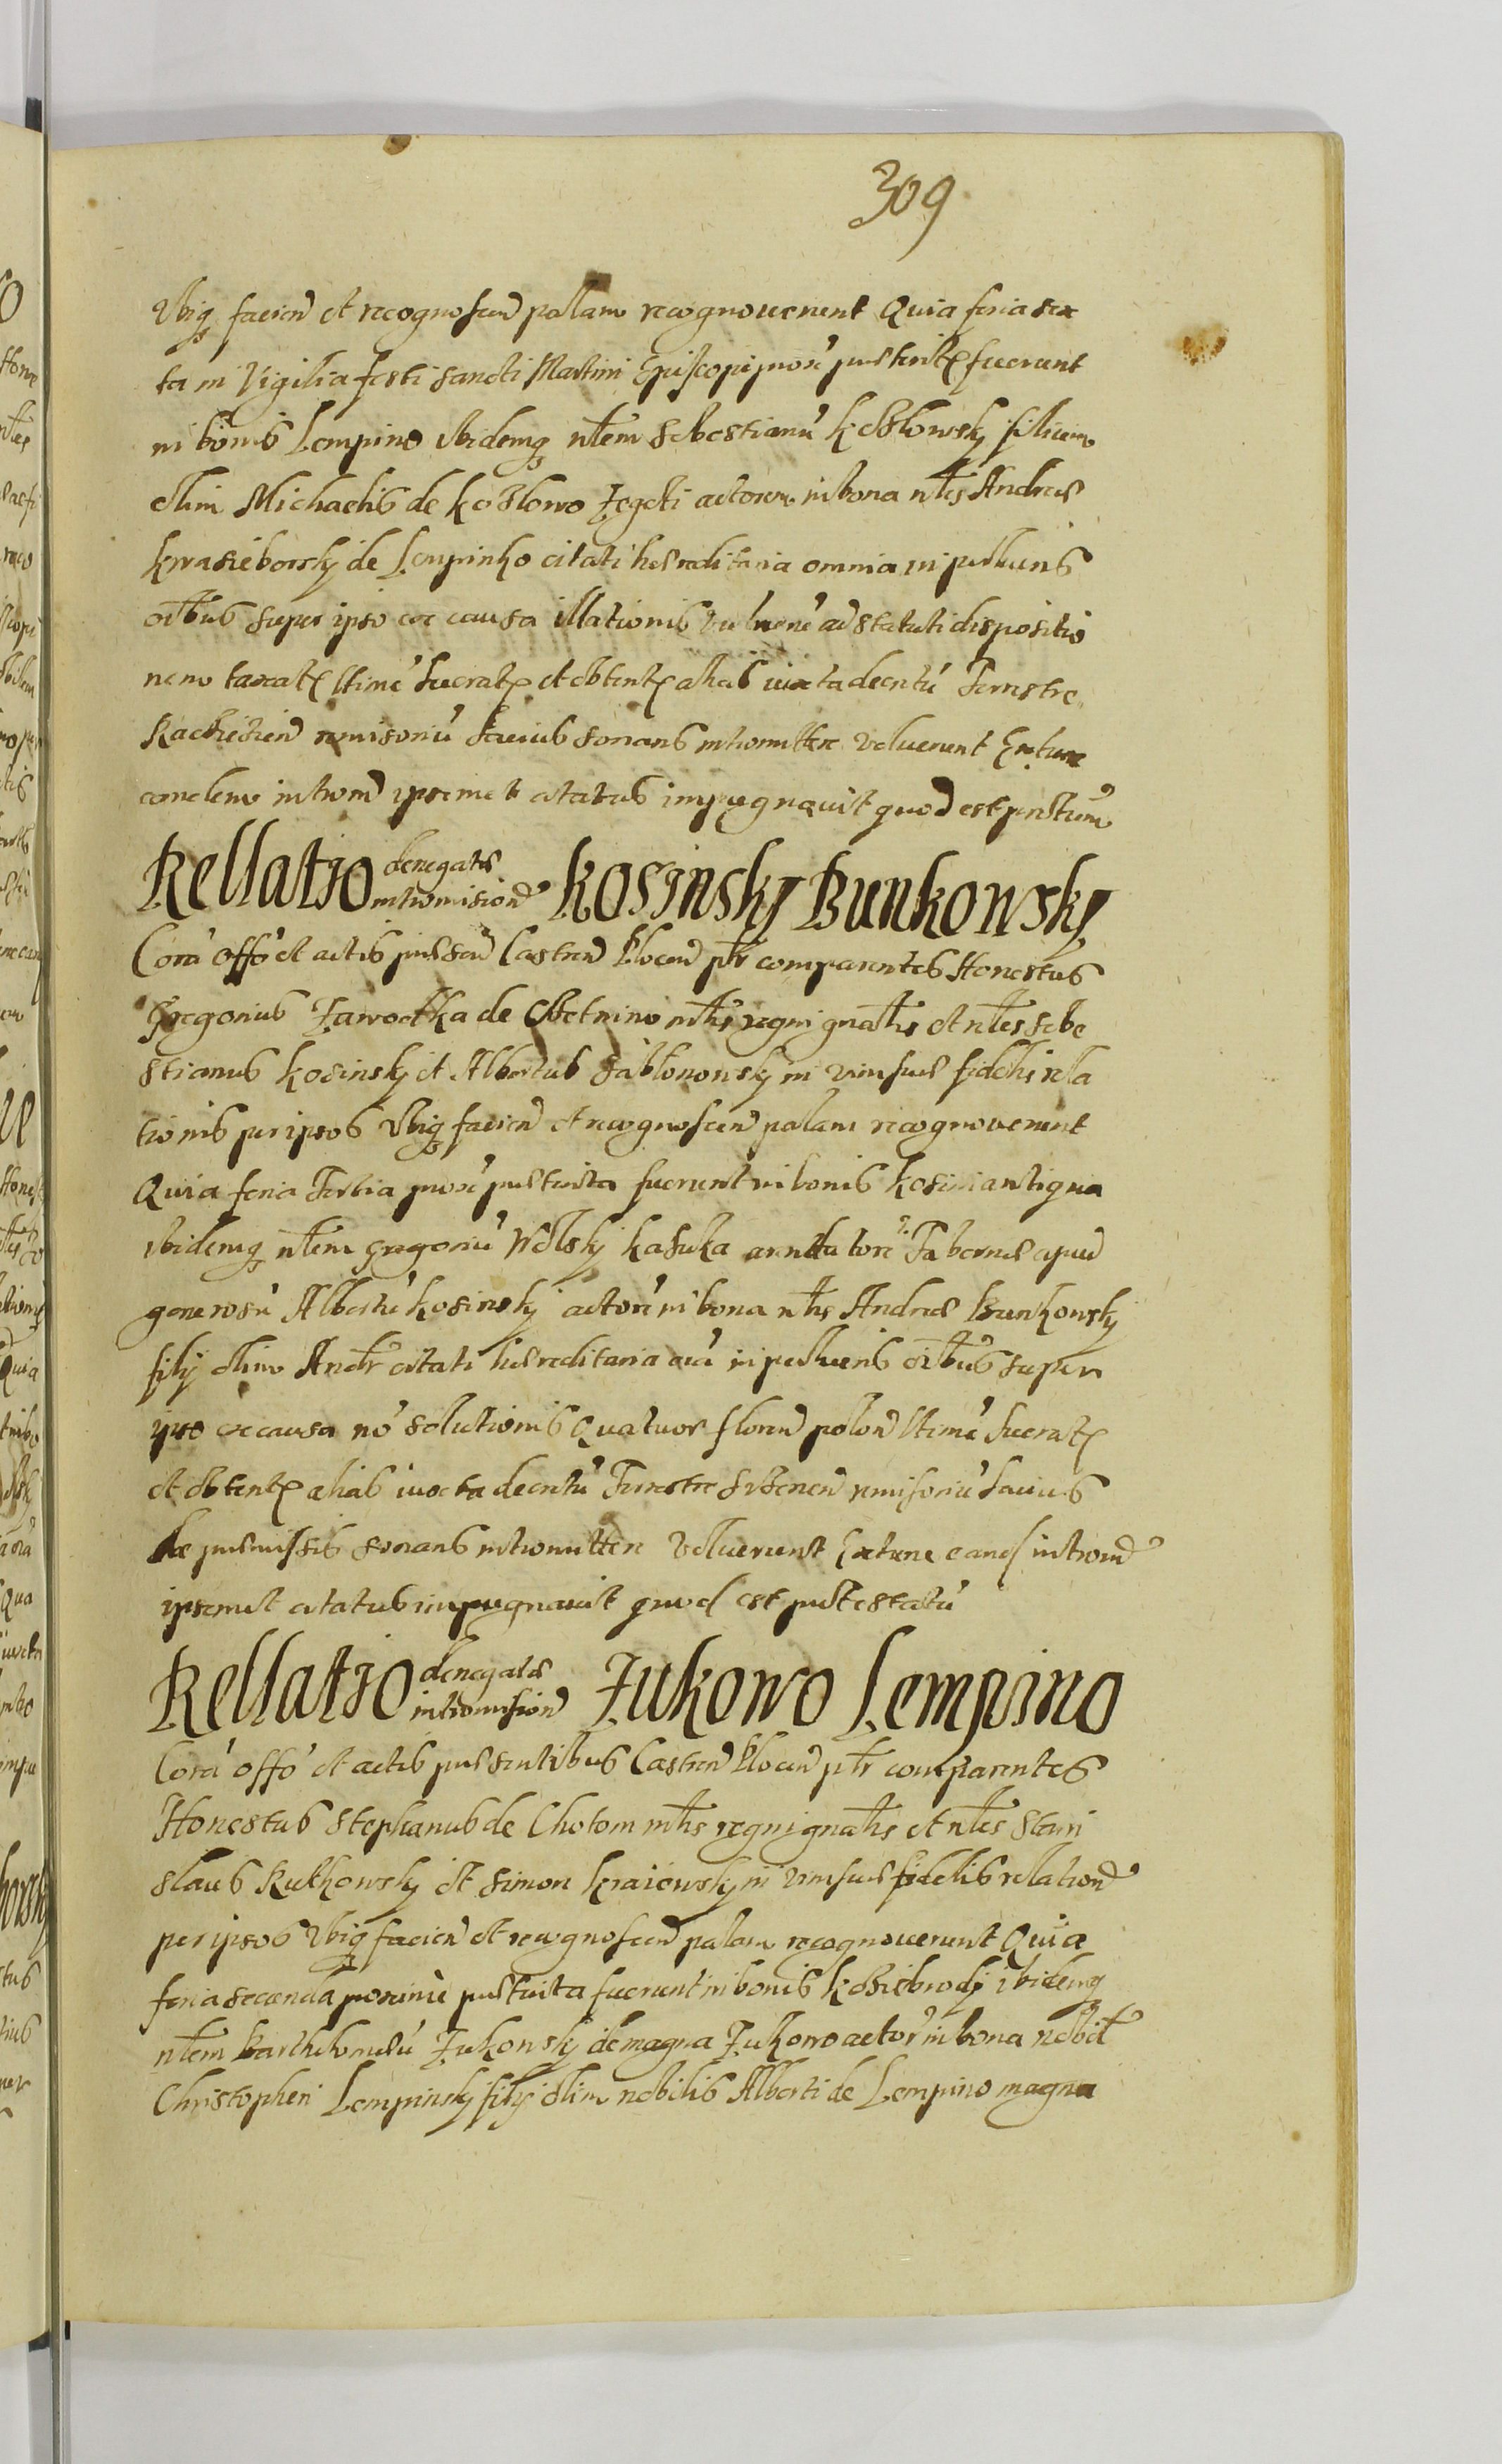 309
Vbiq facien et recognoscen palam recognouerunt Quia feria sex
ta in Vigilia festi sancti Martini Episcopi prox praeterit fuerunt
in bonis Lempino ibidemq nlem Sebestianu Kozlowsky filium
olim Michaelis de Kozlowo Zegoti actorem in bona nlis Andreae
Krasieborsky de Lempinko citati haereditaria omnia in pecuniis
oibus super ipso ex causa illationis vulneru ad statuti dispositio
nem taxat ltime lucrat et obtent alias iuxta decretu Terrestre
Raciazien remissoriu lacius sonans intromittere voluerunt Extunc
eandem introm ipsemet citatus impugnauit quod est prltum
Rellatio denegatae intromision Kosinsky Bunkowsky
Cora offo et actis praesen Castren Plocen ptr comparentes Honestus
Gregorius Zawodka de Obetnino mlis regni gnalis et nles Sebe
stianus Kosinsky et Albertus Jablonowsky in vim suae fidelis rela
tionis per ipsos Vbiq facien et recognoscen palam recognouerunt
Quia feria Tertia prox praeterita fuerunt in bonis Kosini antiqua
ibidemq nlem Gregoriu Wolsky Kasuka arendatore Tabernae apud
generosu Albertu Kosinsky actore in bona nlis Andreae Bunkowsky
filij olim Andr citati haereditaria oia in pecuniis oibus super
ipso ex causa no solutionis Quatuor floren polon ltime lucrat
et obtent alias iuxta decretu Terrestre Srzenen remissoriu lacius
de praemissis sonans intromittere voluerunt Extunc eand introm
ipsemet citatus impugnauit quod est prtestatu
Rellatio denegatae intromision Zukowo Lempino
Cora offo et actis praesentibus Castren Plocen ptr comparentes
Honestus Stephanus de Chotom mlis regni gnalis et nles Stani
slaus Rutkowsky et Simon Kraiewsky in vim suae fidelis rellation
per ipsos Vbiq facien et recognoscen palam recognouerunt Quia
feria secunda proxime praeterita fuerunt in bonis Kozicbrodÿ ibidemq
nlem Bartholomeu Zukowsky de magna Zukowo actor in bona nobil
Christopheri Lempinsky filij olim nobilis Alberti de Lempino magna